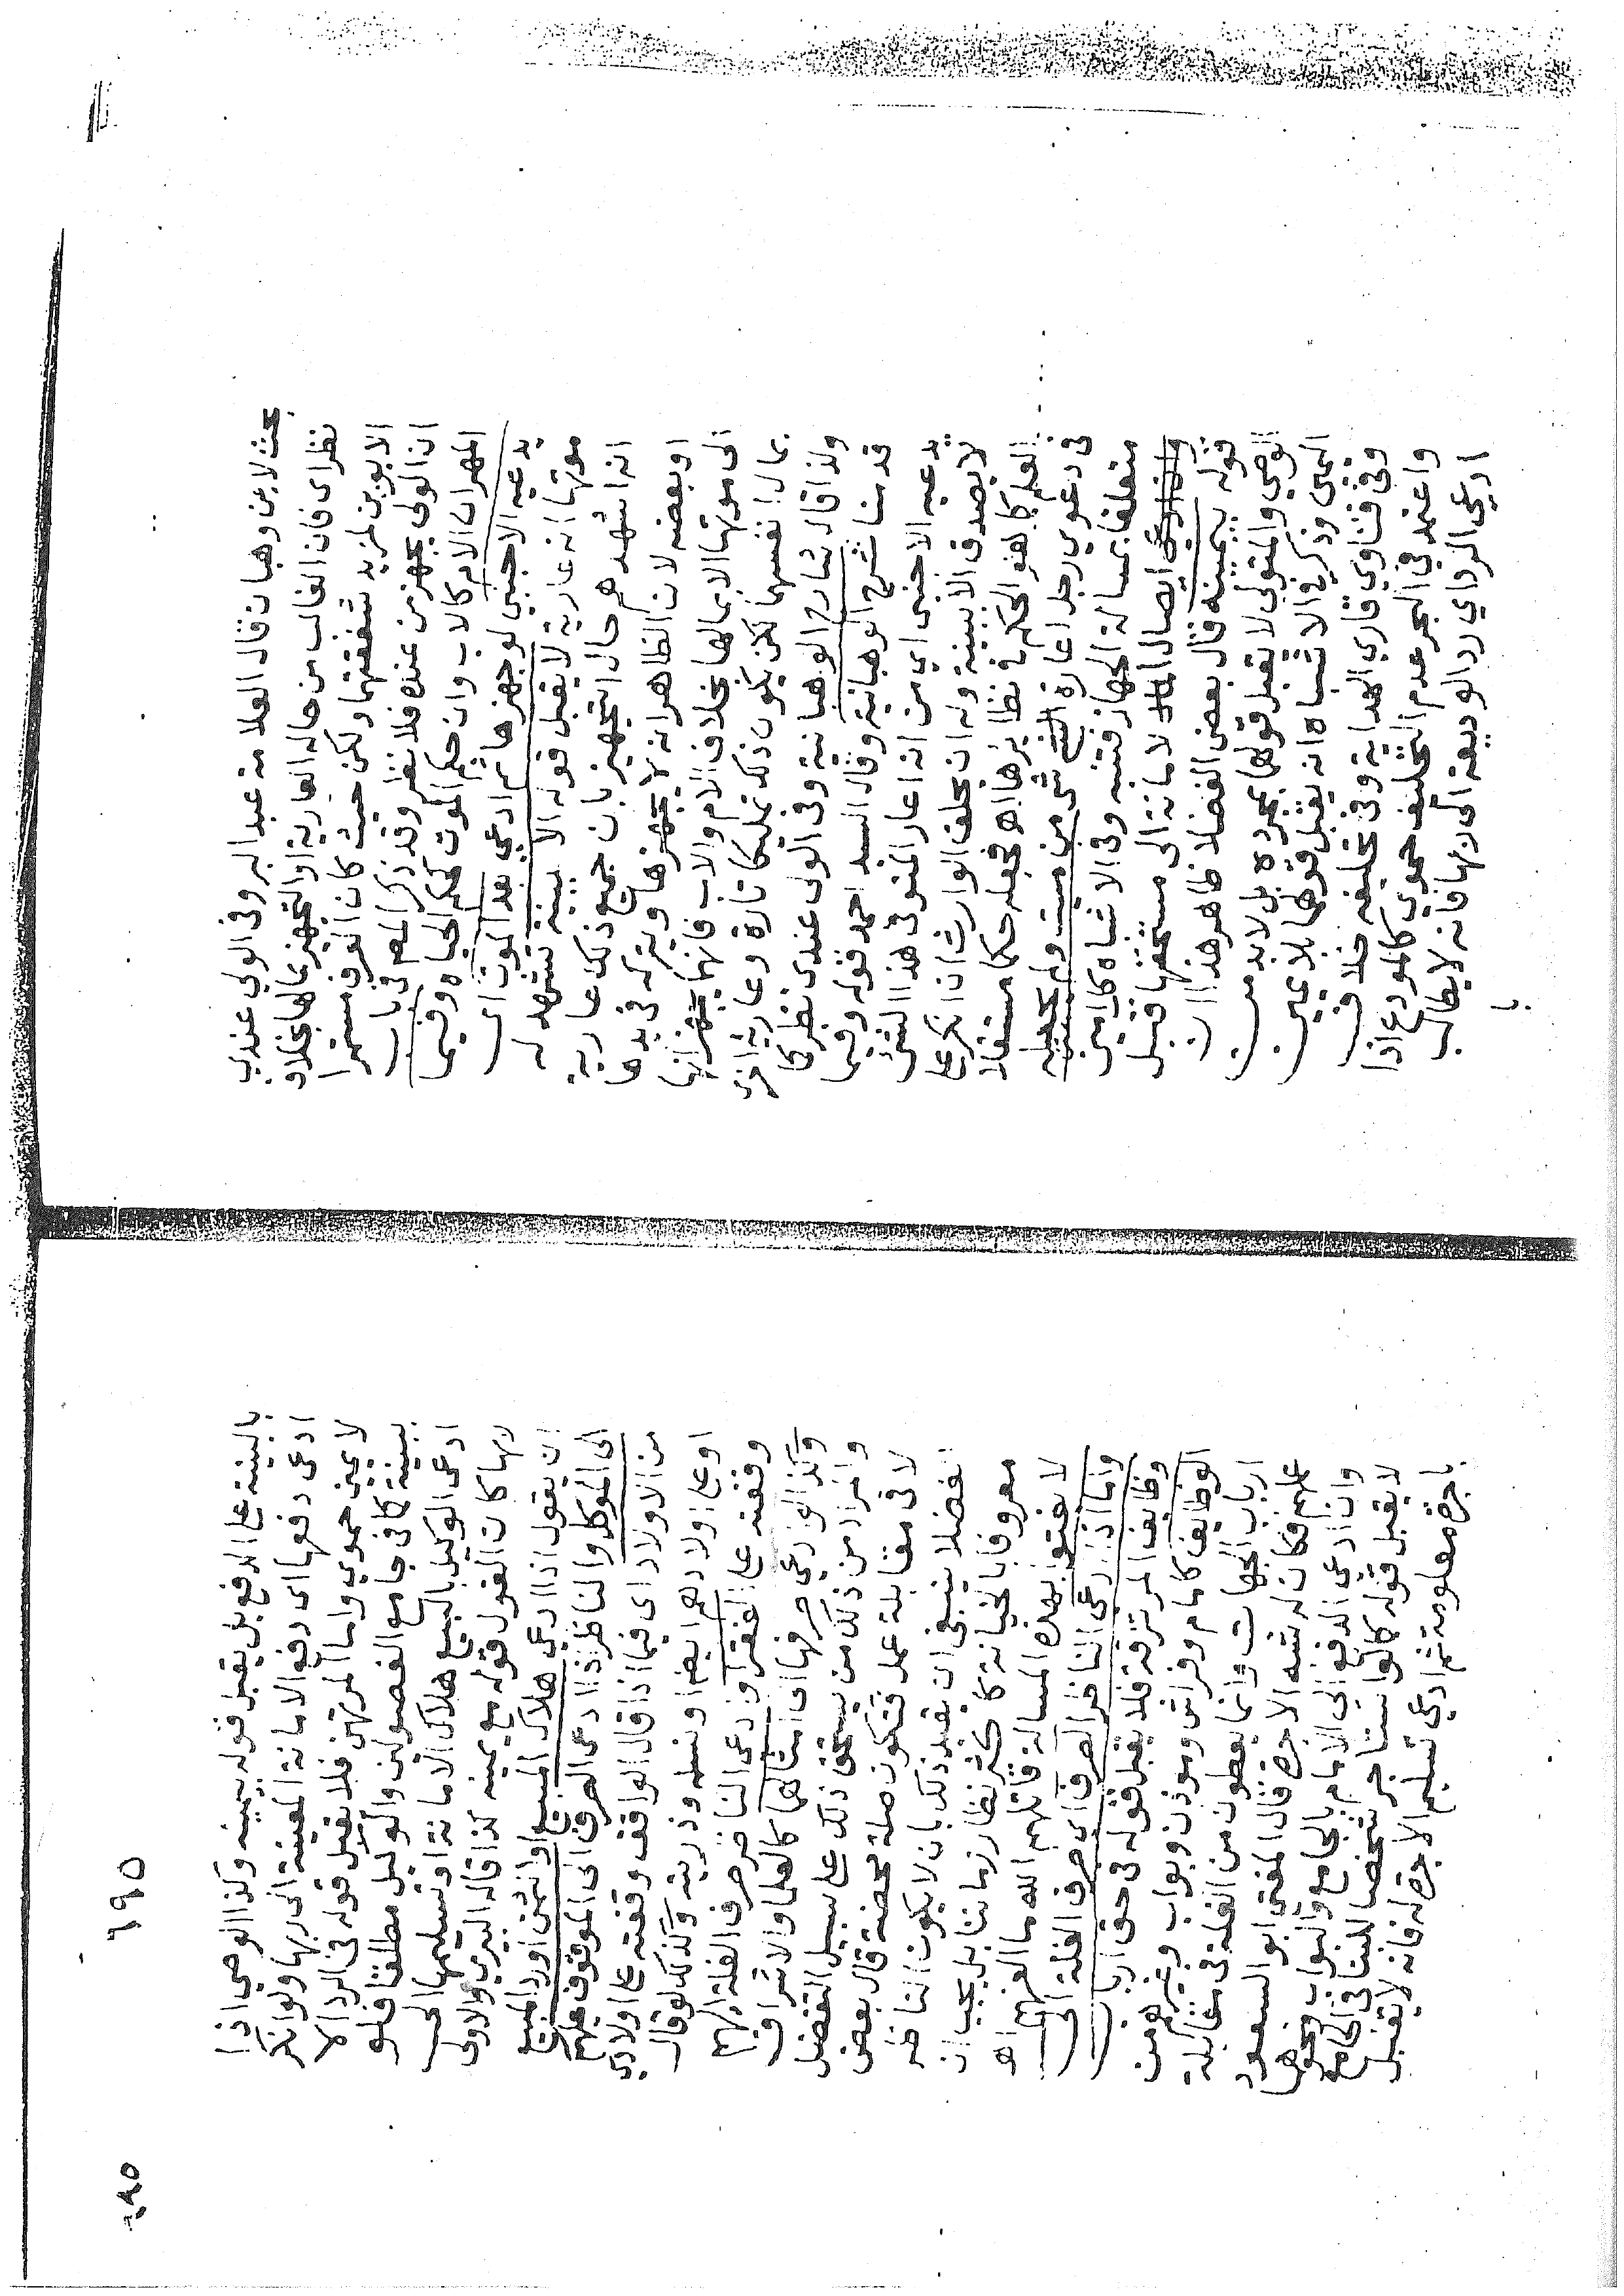 بحث لابن وهبان قال العلامة عبد البر وفي الولي عندي
نظر اى فان الغالب من حاله العارية او التجهيز بمالها بخلاف
الابوين لمزيد شفقتهما ولكن حيث كان العرف مستمرا
ان الولي يجهز من عنده فلا نظر وقد ذكر المصـ في باب
المهر ان الام كالاب وان حكم الموت كحكم الحياه وفيما
يدعيه الاجنبي لو جهزها ثم ادعي بعد الموت اى
موتها انه عارية لا يقبل قوله الا ببينة تشهد له
انه اشهدهم حال التجهيز بان جميع ذلك عارية
او بعضه لان الظاهر انه لا يجهزها ويتركه في يدها
الى موتها الا بمالها بخلاف الام والاب فانهما يجهزانها
بمال انفسهما لكن يكون ذلك تمليكا تارة وعارية اخرى
ولذا قال شارح الوهبانية وفي الولى عندى نظر كما
قدمنا شرح الوهبانية وقال السيد احمد قوله وفيما
يدعيه الاجنبى اي من انه اعار المتوفي هذا الشئ
لا يصدق الا ببينة وله ان يحلف الوارث ان انكر على
العلم كما هو الحكم في نظائرها اهـ فجعله حكما مستقلا
فى دعوي رجل اعارة شئ من ميت ولم يجعله
متعلقا بمسالة الجهاز فتنبه وفي الاشباه كل امين
ادعى ايصال الامانة الى مستحقها قبل
قوله بيمينه قال بعض الفضلا ظاهر هذا ان
الوصي والمتولى لا تقبل قولهما بمجرده بل لا بد من
اليمين وذكر في الاشباه انه يقبل قولهما بلا يمين
وفي فتاوي قاري الهداية وفي تحليفه خلاف
واعتمد في البحر عدم التحليف حموي كالمودع اذا
ادعي الرد اي رد الوديعة الى ربها فانه لا يطالب
با
٦٩٥
بالبينة على الدفع بل يقبل قوله بيمينه وكذا الوصي اذا
ادعى دفعها اى دفع الامانة المعينة الى ربها ولو انكر
لا يمين حموي واما المرتهن فلا تقبل قوله فى الرد الا
ببينة كما في جامع الفصولين والوكيل مطلقا فلو
ادعى الوكيل بالبيع هلاك الامانة او تسليمها الى
ربها كان القول قوله مع يمينه كذا قاله البيري والاولى
ان يقول اذا ادعي هلاك المبيع او الثمن او رد المبيع
الى الموكل والناظر اذا ادعى الصرف الى الموقوف عليهم
من الاولاد اى فيما اذا قال الواقف وقفته على اولادي
او على اولادهم ايضا ونسله وذريته وكذلك لو قال
وقفته على الفقرا وادعى الناضر صرف الغلة اليهم
وكذا لو ادعي صرفها الى امثالها كالعلما والاشراف
والمراد من ذلك من يستحق ذلك على سبيل التفضل
لا في مقابلة عمل فتكون صلة محضة قال بعض
الفضلا ينبغى ان يقيد ذلك بان لا يكون الناظر
معروفا بالخيانة كاكثر نظار زماننا بل يجب ان
لا يفتوا بهذه المسالة قاتلهم الله ما الغهم اهـ
واما اذا ادعى الناظر الصرف اى صرف الغلة الى
وظايف المرتزقة فلا يقبل قوله فى حق ارباب
الوظايف كامام وفراش وموذن وبواب وغيرهم من
ارباب الجهات وانما يعطون من الغلة في مقابلة
عملهم فكان له شبه الاجرة قال المفتى ابو السعود
وان ادعى الدفع الى الامام بالجامع والبواب ونحوهما
لا يقبل قوله كما لو استاجر شخصا للبنا فى الجامع
باجرة معلومة ثم ادعي تسليم الاجرة له فانه لا يقبل
٦٩٥